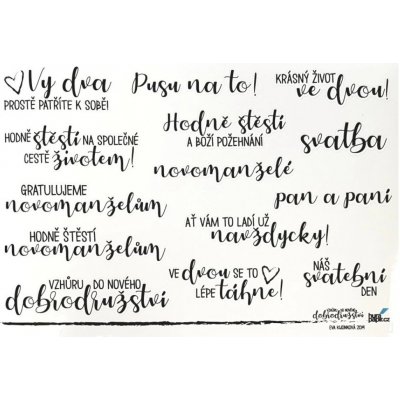 Vy dva
PROSTĚ PATŘÍTE K SOBĚ!
Pusu na to!
KRÁSNÝ ŽIVOT
ve dvou!
HODNĚ štěstí NA SPOLEČNÉ
CESTĚ životem!
Hodně štěstí
A BOŽÍ POŽEHNÁNÍ
svatba
novomanželé
GRATULUJEME
novomanželům
pan a paní
AŤ VÁM TO LADÍ UŽ
navždycky!
HODNĚ ŠTĚSTÍ
novomanželům
VZHŮRU DO NOVÉHO
dobrodružství
VE dvou SE TO
LÉPE táhne!
NÁŠ
svatební
DEN
VZHŮRU DO NOVÉHO
dobrodružství